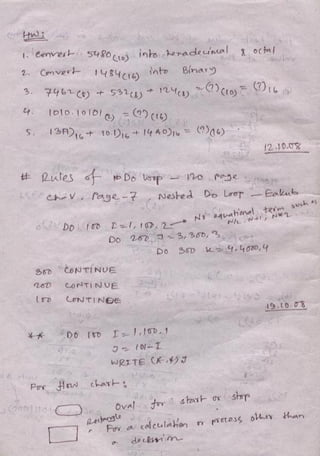 H.W:
1. Convert 5480(10) into hexadecimal & octal
2. Convert 1484(16) into Binary
3. 7462(8) + 532(8) + 124(8) = (?)(10) = (?)16
4. 1010.10101(2) = (?)(16)
5. 13A)16 + 10.1)16 + 14A0)16 = (?)(16)
12.10.08
# Rules of Do loop – 170 page
ch-V, Page-7 Nested Do Loop – Eakub
DO 100 I = 1, 100, 2 → No equational term such as
DO 200 J = 3, 300, 3
DO 300 K = 4, 4000, 4
300 CONTINUE
200 CONTINUE
100 CONTINUE
19.10.08
** DO 100 I = 1, 100, 1
J = 101-I
WRITE (*,*) J
For flow chart:
Oval for start or stop
Rectangle
For a calculation or process other than
a decision